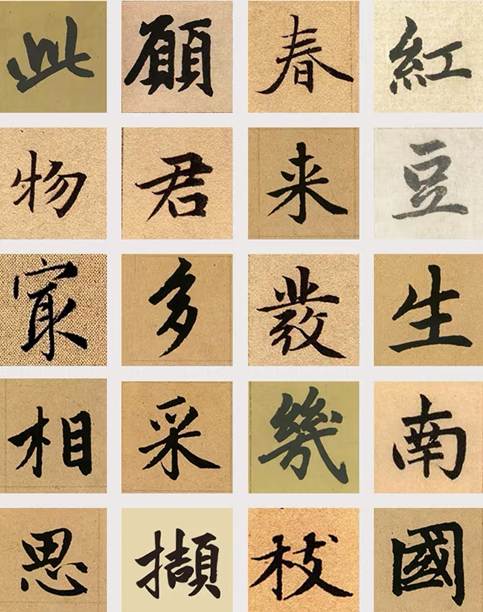 紅豆生南國
春来發幾枝
願君多采擷
此物冣相思